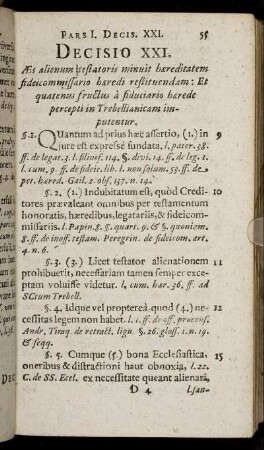 PARS I. DECIS. XXI. 55
DECISIO XXI.
Æs alienum testatoris minuit hæreditatem
fideicommissario hæredi restituendam: Et
quatenus fructus à fiduciario hærede
percepti in Trebellianicam im-
putentur.
§. 1. QUantum ad prius hæc assertio, (1.) in 9
jure est expressè fundata. l. pater. 38.
ff. de legat. 3. l. filiusf. 114. §. divi. 14. ff. de leg. 1.
l. cum. 9. ff. de fideic. lib. l. non solum. 53. ff. de
per. hæred. Gail. 2. obs. 137. n. 14.
§. 2. (2.) Indubitatum est, quòd Credi- 10
tores prævaleant omnibus per testamentum
honoratis, hæredibus, legatariis, & fideicom-
missariis. l. Papin. 8. §. quart. 9. & §. quoniam.
8. ff. de inoff. testam. Peregrin. de fideicom. art.
4. n. 6.
§. 3. (3.) Licet testator alienationem 11
prohibuerit, necessariam tamen semper exce-
ptam voluisse videtur. l. cum har. 36. ff. ad
SCtum Trebell.
§. 4. Idque vel propterea quod (4.) ne- 12
cessitas legem non habet. l. 1. ff. de off. procons.
Andr. Tiraq. de retract. lign. §. 26. gloss. 1. n. 19.
& seqq.
§. 5. Cumque (5.) bona Ecclesiastica, 15
oneribus & distractioni haut obnoxia, l. 22.
C. de SS. Eccl. ex necessitate queant alienari,
D 4 l. san-